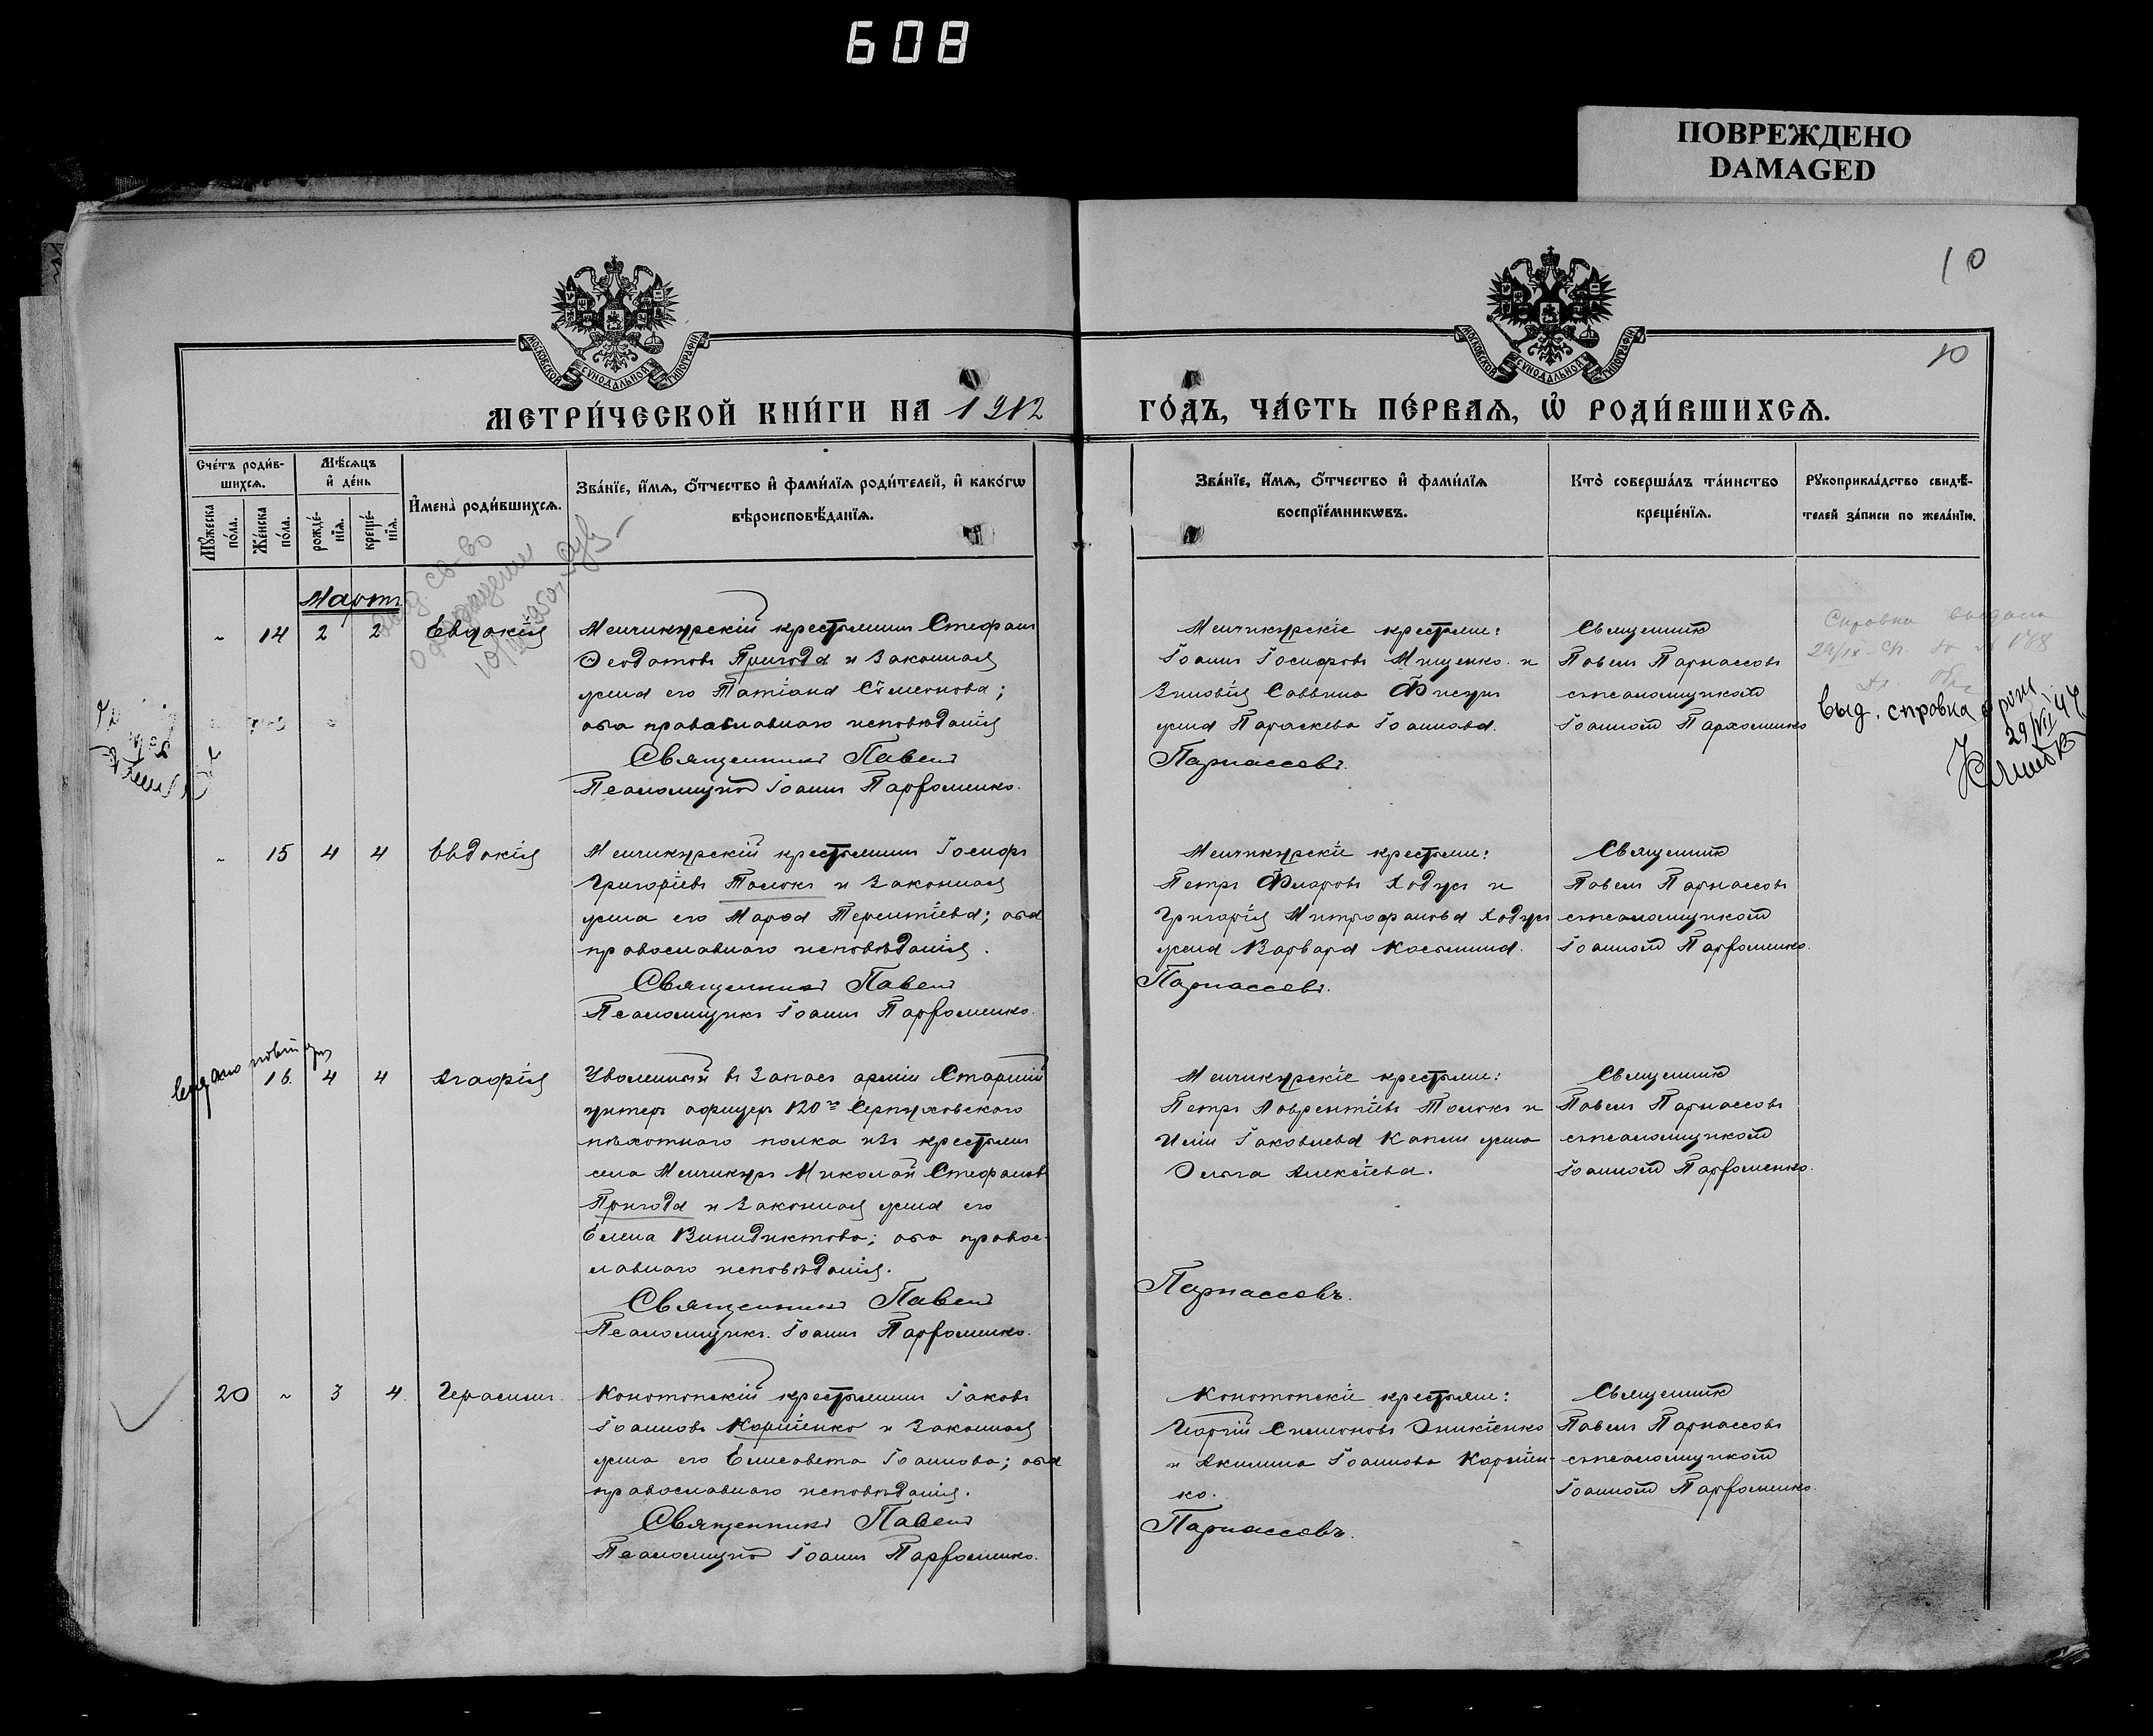 608
ПОВРЕЖДЕНО
DAMAGED
10
10
МОСКОВСКОЙ СѴНОДАЛЬНОЙ ТИПОГРАФІИ
МОСКОВСКОЙ СѴНОДАЛЬНОЙ ТИПОГРАФІИ
МЕТРИ́ЧЕСКОЙ КНИ́ГИ НА 1912
ГО́ДЪ, ЧА́СТЬ ПЕ́РВАѦ, Ѡ҆ РОДИ́ВШИХСѦ.
Сче́тъ роди́в-
шихсѧ.
Мѣ́сѧцъ
и҆ де́нь
Мꙋ́жеска по́ла.
Же́нска по́ла.
рожде́-
нїѧ.
креще́-
нїѧ.
И҆мена̀ роди́вшихсѧ.
Зва́нїе, и҆́мѧ, ѻ҆́тчество и҆ фами́лїѧ роди́телей, и҆ како́гѡ
вѣроисповѣ́данїѧ.
Зва́нїе, и҆́мѧ, ѻ҆́тчество и҆ фами́лїѧ
воспрїе́мникѡвъ.
Кто̀ соверша́лъ та́инство
креще́нїѧ.
Рꙋкоприкла́дство свидѣ́-
телей за́писи по жела́нїю.
Мартъ
14 2 2 Евдокія
Менчикурскій крестьянинъ Стефанъ
Феодотовъ Пригода и законная
жена его Татіана Сѵмеонова;
оба православнаго исповѣданія
Священникъ Павелъ
Псаломщикъ Іоаннъ Парфоменко.
Менчикурскіе крестьяне:
Іоаннъ Іосифовъ Мищенко и
Зиновія Саввина Фисунъ
жена Параскева Іоаннова.
Парнассовъ.
Священникъ
Павелъ Парнассовъ
съ псаломщикомъ
Іоанномъ Пархоменко
Справка выдана
Выд. справка о рож
29/VII 44
15 4 4 Евдокія
Менчикурскій крестьянинъ Іосифъ
Григоріевъ Толокъ и законная
жена его Марѳа Терентіева; оба
православнаго исповѣданія.
Священникъ Павелъ
Псаломщикъ Іоаннъ Парфоменко.
Менчикурскіе крестьяне:
Петръ Флоровъ Ходусъ и
Григорія Митрофанова Ходусъ
жена Варвара Косьмина.
Парнассовъ.
Священникъ
Павелъ Парнассовъ
съ псаломщикомъ
Іоанномъ Парфоменко.
16. 4 4 Агафія
Уволенный въ запасъ арміи Старшій
унтеръ офицеръ 120го Серпуховского
пѣхотнаго полка изъ крестьянъ
села Менчикуръ Николай Стефановъ
Пригода и законная жена его
Елена Винидиктова; оба правос-
лавнаго исповѣданія.
Священникъ Павелъ
Псаломщикъ. Іоаннъ Парфоменко.
Менчикурскіе крестьяне:
Петръ Лаврентіевъ Толокъ и
Иліи Іаковлева Капли жена
Ольга Алексіева.
Парнассовъ.
Священникъ
Павелъ Парнассовъ
съ псаломщикомъ
Іоанномъ Парфоменко.
20 3 4. Герасимъ.
Конотопскій крестьянинъ Іаковъ
Іоанновъ Корніенко и законная
жена его Елисавета Іоаннова; оба
православнаго исповѣданія.
Священникъ Павелъ
Псаломщикъ Іоаннъ Парфоменко.
Конотопскіе крестьяне:
Георгій Симеоновъ Оникіенко
и Акилина Іоаннова Корніен-
ко.
Парнассовъ.
Священникъ
Павелъ Парнассовъ
съ псаломщикомъ
Іоанномъ Парфоменко.